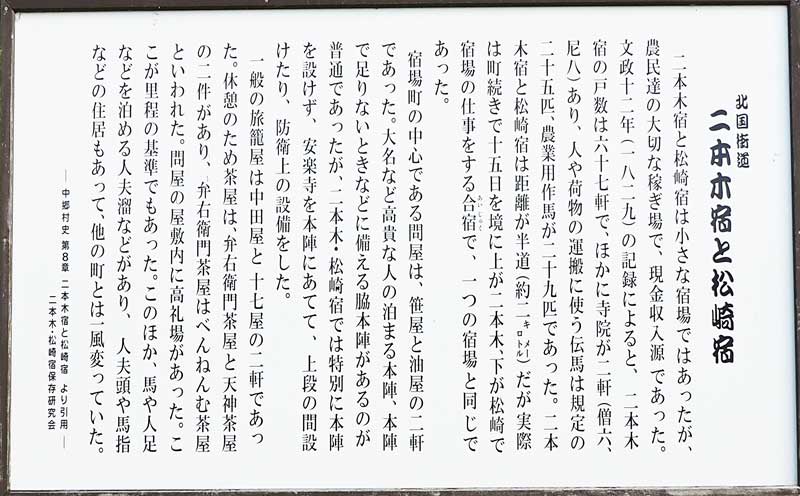 北国街道
二本木宿と松崎宿
二本木宿と松崎宿は小さな宿場ではあったが、
農民達の大切な稼ぎ場で、現金収入源であった。
文政十二年(一八二九)の記録によると、二本木
宿の戸数は六十七軒で、ほかに寺院が二軒(僧六、
尼八)あり、人や荷物の運搬に使う伝馬は規定の
二十五匹、農業用作馬が二十九匹であった。二本
木宿と松崎宿は距離が半道(約二キロメートル)だが実際
は町続きで十五日を境に上が二本木、下が松崎で
宿場の仕事をする合宿で、一つの宿場と同じで
あいじゅく
あった。
宿場町の中心である問屋は、笹屋と油屋の二軒
であった。大名など高貴な人の泊まる本陣、本陣
で足りないときなどに備える脇本陣があるのが
普通であったが、二本木・松崎宿では特別に本陣
を設けず、安楽寺を本陣にあてて、上段の間設
けたり、防衛上の設備をした。
一般の旅籠屋は中田屋と十七屋の二軒であっ
た。休憩のため茶屋は、弁右衛門茶屋と天神茶屋
の二件があり、弁右衛門茶屋はべんねんむ茶屋
といわれた。問屋の屋敷内に高礼場があった。こ
こが里程の基準でもあった。このほか、馬や人足
などを泊める人夫溜などがあり、人夫頭や馬指
などの住居もあって、他の町とは一風変っていた。
― 中郷村史 第8章 二本木宿と松崎宿 より引用 ―
二本木・松崎宿保存研究会